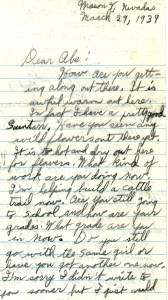 Mason, Nevada
March 29, 1939
Dear Abe:
How are you gett-
ing along out there. It is
awful warm out here.
In fact I have a pretty good
Sunburn. Have you seen any
wild flowers out there yet.
It is to hot and dry out here
for flowers. What kind of
work are you doing now.
I'm helping build a cattle
trail now. Are you still going
to School and how are your
grades. What grade are you
in now. Do you still
go with the same girl or
have you got another one now.
I'm sorry I didn't write to
you sooner but I just could